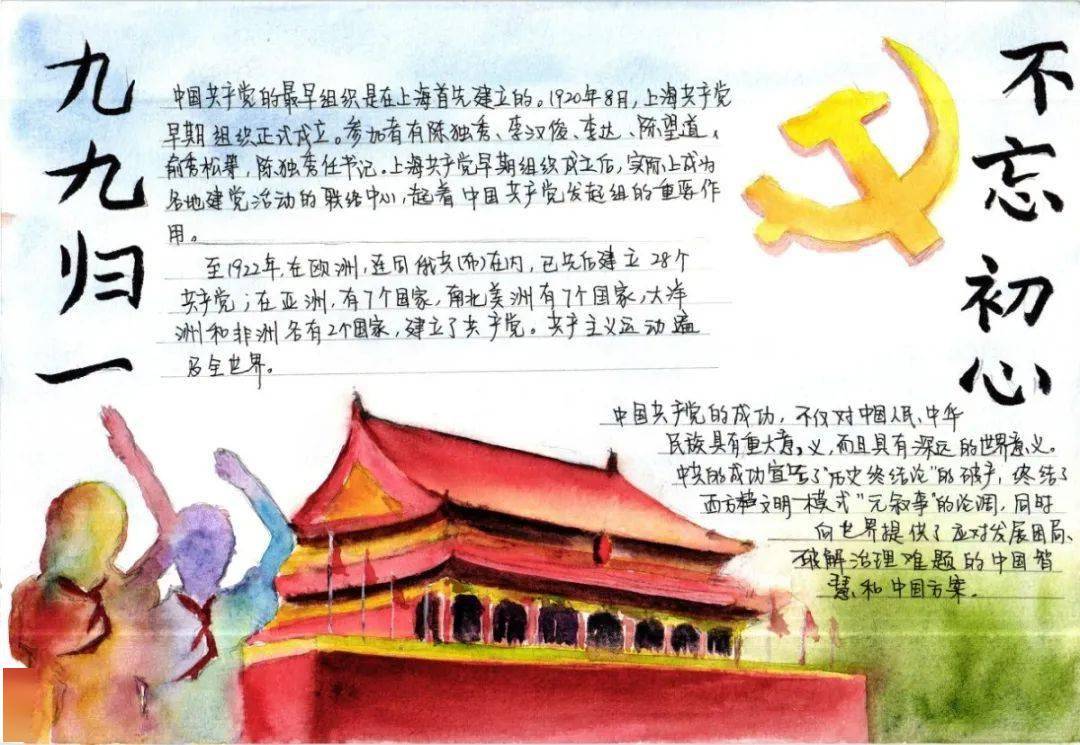 九九归一
中国共产党的最早组织是在上海首先建立的。1920年8月,上海共产党
早期组织正式成立。参加者有陈独秀、李汉俊、李达、陈望道、
俞秀松等,陈独秀任书记。上海共产党早期组织成立后,实际上成为
各地建党活动的联络中心,起着中国共产党发起组的重要作
用。
至1922年,在欧洲,连同俄共(布)在内,已先后建立28个
共产党;在亚洲,有7个国家,南北美洲有7个国家,大洋
洲和非洲各有2个国家,建立了共产党。共产主义运动遍
及全世界。
不忘初心
中国共产党的成功,不仅对中国人民、中华
民族具有重大意义,而且具有深远的世界意义。
中共的成功宣告了"历史终结论"的破产,终结了
西方文明模式"元叙事"的论调,同时
向世界提供了应对发展困局、
破解治理难题的中国智
慧和中国方案。